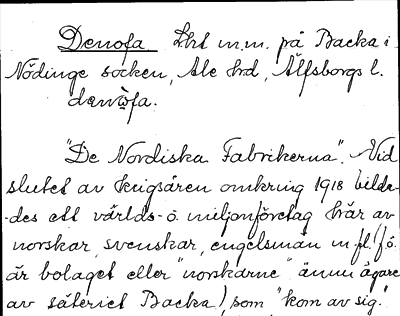 Denofa Lht m.m. på Backa i
Nödinge socken, Ale hrd, Älfsborgs l.
danò̩fa.
"De Nordiska Fabrikerna". Vid
slutet av krigsåren omkring 1918 bilda-
-des ett världs- o. miljonföretag här av
norskar, svenskar, engelsmän m fl. (f ö.
är bolaget eller "norskarne" ännu ägare
av säteriet Backa), som "kom av sig".